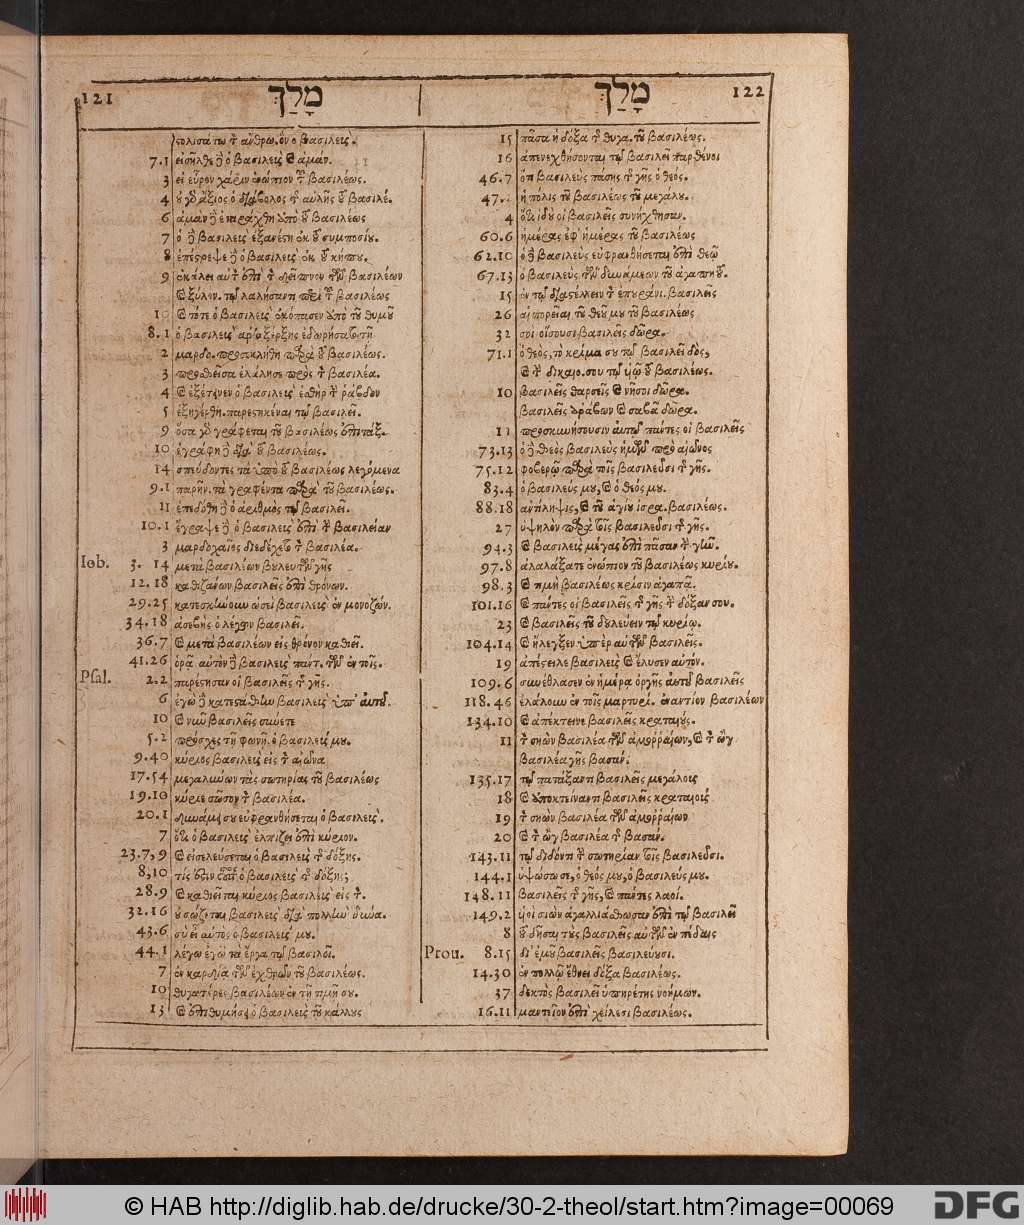 121 מָלַךְ
מָלַךְ 122
7.1 εἰσῆλθε δὲ ὁ βασιλεὺς καὶ ἀμάν.
3 εἰ εὗρον χάριν ἐνώπιον τοῦ βασιλέως.
4 οὐ γὰρ ἄξιος ὁ διάβολος τῆς αὐλῆς τοῦ βασιλέ.
6 ἀμὰν δὲ ἐταράχθη ἀπὸ τοῦ βασιλέως
7 ὁ δὲ βασιλεὺς ἐξανέστη ἐκ τοῦ συμποσίου.
8 ἐπέστρεψε δὲ ὁ βασιλεὺς ἐκ τοῦ κήπου.
9 ἐκάλει αὐτὸν ἐπὶ τὸ δεῖπνον τῶν βασιλέων
καὶ ξύλον. τῷ λαλήσαντι περὶ τοῦ βασιλέως
10 καὶ τότε ὁ βασιλεὺς ἐκόπασεν ἀπὸ τοῦ θυμοῦ
8.1 ὁ βασιλεὺς ἀρταξέρξης ἐδωρήσατο τῇ
2 μαρδο. προσκλήθη παρὰ τοῦ βασιλέως.
3 προσθεῖσα ἐλάλησε πρὸς τὸν βασιλέα.
4 καὶ ἐξέτεινεν ὁ βασιλεὺς ἐσθὴρ τὴν ῥάβδον
5 ἐξηγέρθη. παρεστηκέναι τῷ βασιλεῖ.
9 ὅσα γὰρ γράφεται τοῦ βασιλέως ἐπιτάξ.
10 ἐγράφη δὲ διὰ τοῦ βασιλέως.
14 σπεύδοντες τὰ ὑπὸ τοῦ βασιλέως λεγόμενα
9.1 παρῆν. τὰ γραφέντα παρὰ τοῦ βασιλέως.
11 ἐπεδόθη δὲ ὁ ἀριθμὸς τῷ βασιλεῖ.
10.1 ἔγραψε δὲ ὁ βασιλεὺς ἐπὶ τὴν βασιλείαν
3 μαρδοχαῖος διεδέχετο τὸν βασιλέα.
Iob. 3. 14 μετὰ βασιλέων βουλευτῶν γῆς
12.18 καθιζάνων βασιλεῖς ἐπὶ θρόνων.
29.25 κατεσκήνουν ὡσεὶ βασιλεὺς ἐν μονοζών.
34.18 ἀσεβὴς ὁ λέγων βασιλεῖ.
36.7 καὶ μετὰ βασιλέων εἰς θρόνον καθιεῖ.
41.26 ὁρᾷ αὐτὸν δὲ βασιλεὺς πάντ. τῶν ἐν τοῖς.
Psal. 2.2 παρέστησαν οἱ βασιλεῖς τῆς γῆς.
6 ἐγὼ δὲ κατεστάθην βασιλεὺς ὑπ' αὐτοῦ.
10 καὶ νῦν βασιλεῖς σύνετε
5.2 πρόσχες τῇ φωνῇ. ὁ βασιλεύς μου.
9.40 κύριος βασιλεὺς εἰς τὸν αἰῶνα
17.54 μεγαλύνων τὰς σωτηρίας τοῦ βασιλέως
19.10 κύριε σῶσον τὸν βασιλέα.
20.1 δυνάμει σου εὐφρανθήσεται ὁ βασιλεύς.
7 ὅτι ὁ βασιλεὺς ἐλπίζει ἐπὶ κύριον.
23.7,9 καὶ εἰσελεύσεται ὁ βασιλεὺς τῆς δόξης.
8,10 τίς ἐστιν οὗτος ὁ βασιλεὺς τῆς δόξης;
28.9 καὶ καθιεῖται κύριος βασιλεὺς εἰς τὸν.
32.16 οὐ σώζεται βασιλεὺς διὰ πολλὴν δύνα.
43.6 σὺ εἶ αὐτὸς ὁ βασιλεύς μου.
44.1 λέγω ἐγὼ τὰ ἔργα τῷ βασιλεῖ.
7 ἐν καρδίᾳ τῶν ἐχθρῶν τοῦ βασιλέως.
10 θυγατέρες βασιλέων ἐν τῇ τιμῇ σου.
13 καὶ ἐπιθυμήσει ὁ βασιλεὺς τοῦ κάλλους
15 πᾶσα ἡ δόξα τῆς θυγα. τοῦ βασιλέως.
16 ἀπενεχθήσονται τῷ βασιλεῖ παρθένοι
46.7 ὅτι βασιλεὺς πάσης τῆς γῆς ὁ θεός.
47. ἡ πόλις τοῦ βασιλέως τοῦ μεγάλου.
4 ὅτι ἰδοὺ οἱ βασιλεῖς συνήχθησαν.
60.6 ἡμέρας ἐφ' ἡμέρας τοῦ βασιλέως
62.10 ὁ δὲ βασιλεὺς εὐφρανθήσεται ἐπὶ θεῷ
67.13 ὁ βασιλεὺς τῶν δυνάμεων τοῦ ἀγαπητοῦ.
15 ἐν τῷ διαστέλλειν τὸν ἐπουράνι. βασιλεῖς
26 αἱ πορεῖαι τοῦ θεοῦ μου τοῦ βασιλέως
32 σοὶ οἴσουσι βασιλεῖς δῶρα.
71.1 ὁ θεός, τὸ κρίμα σου τῷ βασιλεῖ δὸς,
καὶ τὴν δικαιο. σου τῷ υἱῷ τοῦ βασιλέως.
10 βασιλεῖς θαρσεῖς καὶ νῆσοι δῶρα.
βασιλεῖς ἀράβων καὶ σαβᾶ δῶρα.
11 προσκυνήσουσιν αὐτῷ πάντες οἱ βασιλεῖς
73.13 ὁ δὲ θεὸς βασιλεὺς ἡμῶν πρὸ αἰῶνος
75.12 φοβερῷ παρὰ τοῖς βασιλεῦσι τῆς γῆς.
83.4 ὁ βασιλεύς μου, καὶ ὁ θεός μου.
88.18 ἀντίληψις, καὶ τοῦ ἁγίου ἰσρα. βασιλέως.
27 ὑψηλὸν παρὰ τοῖς βασιλεῦσι τῆς γῆς.
94.3 καὶ βασιλεὺς μέγας ἐπὶ πᾶσαν τὴν γῆν.
97.8 ἀλαλάξατε ἐνώπιον τοῦ βασιλέως κυρίου.
98.3 καὶ τιμὴ βασιλέως κρίσιν ἀγαπᾷ.
101.16 καὶ πάντες οἱ βασιλεῖς τῆς γῆς τὴν δόξαν σου.
23 καὶ βασιλεῖς τοῦ δουλεύειν τῷ κυρίῳ.
104.14 καὶ ἤλεγξεν ὑπὲρ αὐτῶν βασιλεῖς.
19 ἀπέστειλε βασιλεὺς καὶ ἔλυσεν αὐτόν.
109.6 συνέθλασεν ἐν ἡμέρᾳ ὀργῆς αὐτοῦ βασιλεῖς
118.46 ἐλάλουν ἐν τοῖς μαρτυρί. ἐναντίον βασιλέων
134.10 καὶ ἀπέκτεινε βασιλεῖς κραταιούς.
11 τὸν σηὼν βασιλέα τῶν ἀμορραίων, καὶ τὸν ὢγ
βασιλέα γῆς βασάν.
135.17 τῷ πατάξαντι βασιλεῖς μεγάλους
18 καὶ ἀποκτείναντι βασιλεῖς κραταιούς
19 τὸν σηὼν βασιλέα τῶν ἀμορραίων
20 καὶ τὸν ὢγ βασιλέα τῆς βασάν.
143.11 τῷ διδόντι τὴν σωτηρίαν τοῖς βασιλεῦσι.
144.1 ὑψώσω σε, ὁ θεός μου, ὁ βασιλεύς μου.
148.11 βασιλεῖς τῆς γῆς, καὶ πάντες λαοί.
149.2 υἱοὶ σιὼν ἀγαλλιάσθωσαν ἐπὶ τῷ βασιλεῖ
8 τοῦ δῆσαι τοὺς βασιλεῖς αὐτῶν ἐν πέδαις
Prou. 8.15 δι' ἐμοῦ βασιλεῖς βασιλεύουσι.
14.30 ἐν πολλῷ ἔθνει δόξα βασιλέως.
37 δεκτὸς βασιλεῖ ὑπηρέτης νοήμων.
16.11 μαντεῖον ἐπὶ χείλεσι βασιλέως.
© HAB http://diglib.hab.de/drucke/30-2-theol/start.htm?image=00069
DFG